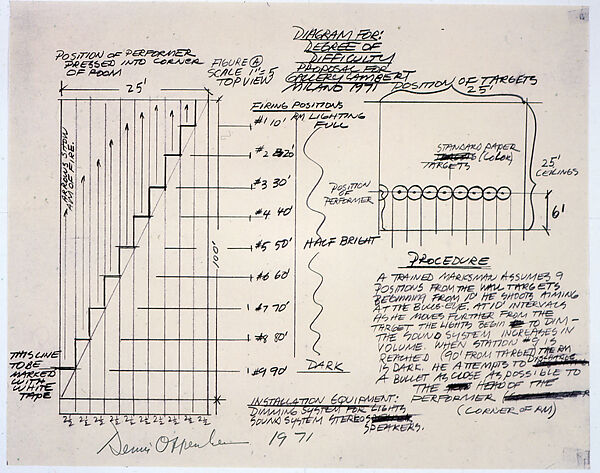 DIAGRAM FOR:
DEGREE OF
DIFFICULTY
PROPOSAL FOR
GALLERY LAMBERT
MILANO 1971
POSITION OF PERFORMER
PRESSED INTO CORNER
OF ROOM
FIGURE A
SCALE 1"=5
TOP VIEW
25'
ARROWS SHOW
AIM OF FIRE.
100'
THIS LINE
TO BE
MARKED
WITH
WHITE
TAPE
2½ 2½ 2½ 2½ 2½ 2½ 2½ 2½ 2½ 2½
FIRING POSITIONS
#1 10'
#2 20'
#3 30'
#4 40'
#5 50'
#6 60'
#7 70'
#8 80'
#9 90'
RM LIGHTING
FULL
HALF BRIGHT
DARK
POSITION OF TARGETS
25'
STANDARD PAPER
TARGETS (COLOR)
POSITION
OF
PERFORMER
25'
CEILINGS
6'
PROCEDURE
A TRAINED MARKSMAN ASSUMES 9
POSITIONS FROM THE WALL TARGETS
BEGINNING FROM 10' HE SHOOTS AIMING
AT THE BULLS-EYE. AT 10' INTERVALS
AS HE MOVES FURTHER FROM THE
TARGET THE LIGHTS BEGIN TO DIM –
THE SOUND SYSTEM INCREASES IN
VOLUME. WHEN STATION #9 IS
REACHED (90' FROM TARGET) THE RM
IS DARK. HE ATTEMPTS TO DISCHARGE
A BULLET AS CLOSE AS POSSIBLE TO
THE HEAD OF THE
PERFORMER
(CORNER OF RM)
INSTALLATION EQUIPMENT:
DIMMING SYSTEM FOR LIGHTS
SOUND SYSTEM STEREO
SPEAKERS.
Dennis Oppenheim 1971